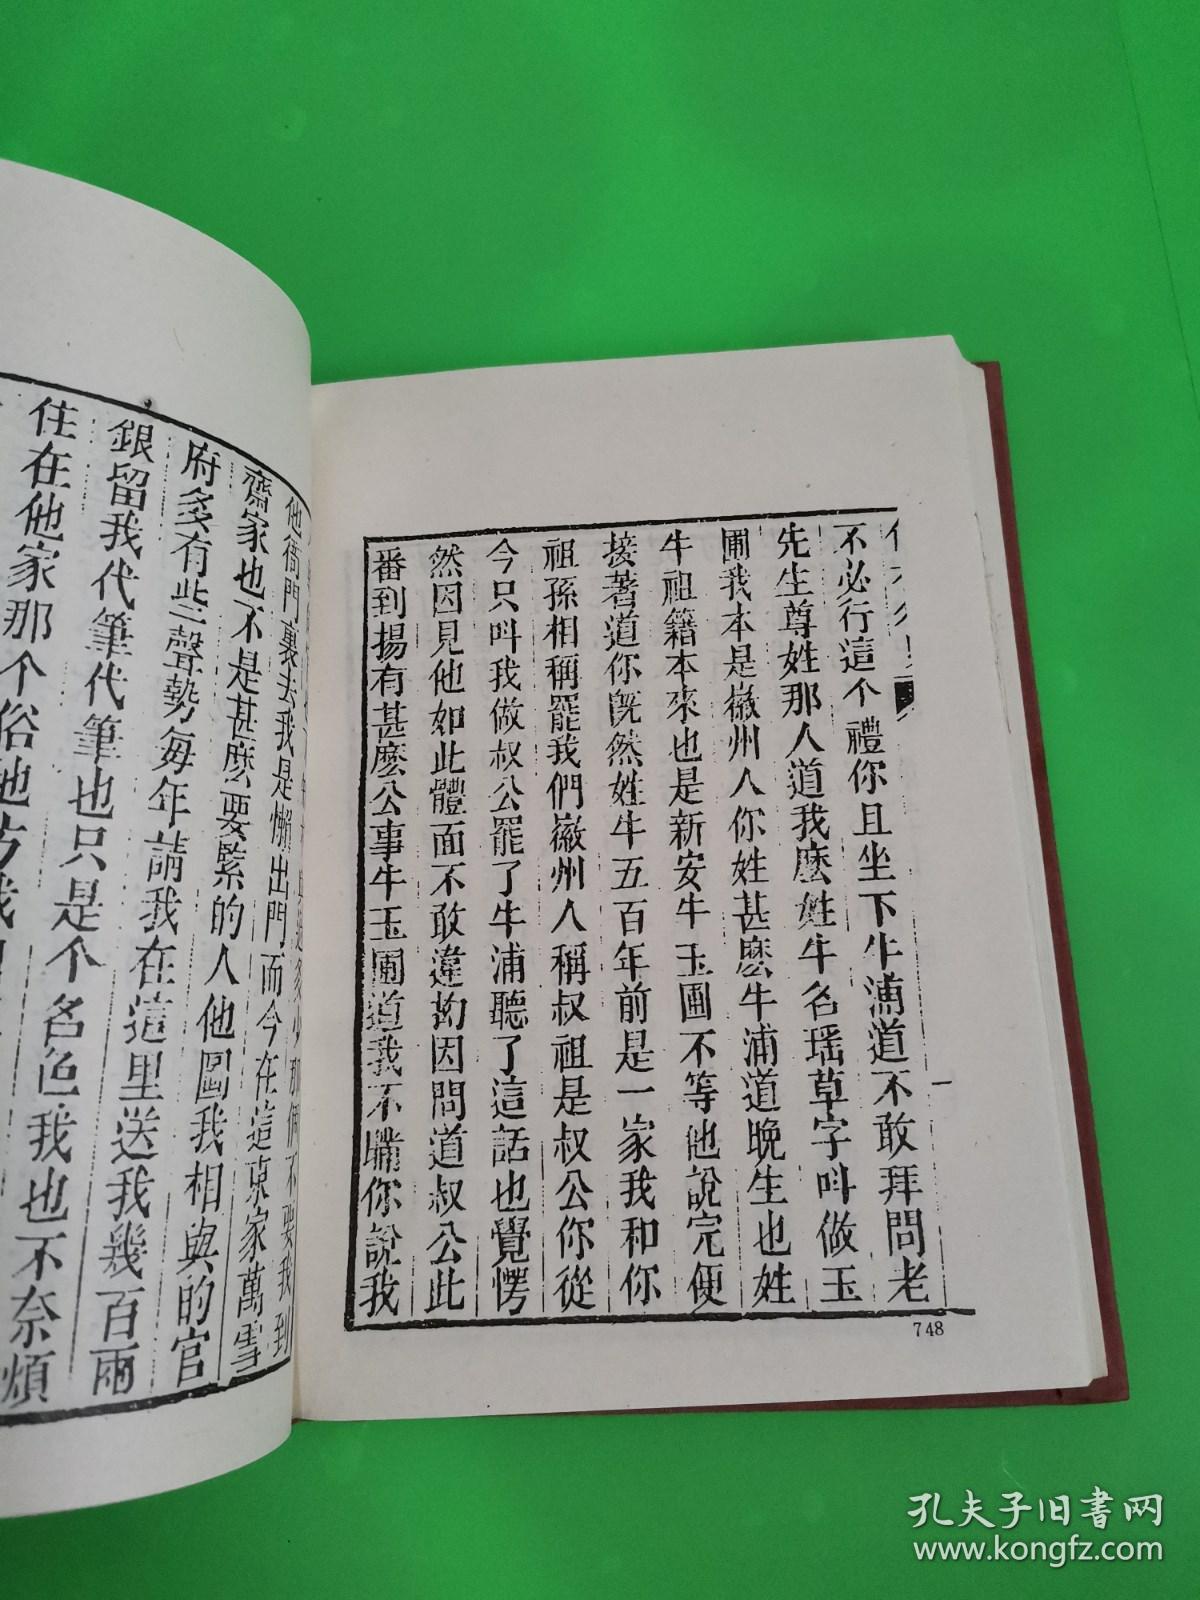 不必行這个禮你且坐下牛浦道不敢拜問老
先生尊姓那人道我麽姓牛名瑶草字呌做玉
圃我本是徽州人你姓甚麽牛浦道晚生也姓
牛祖籍本來也是新安牛玉圃不等他說完便
接著道你既然姓牛五百年前是一家我和你
祖孫相稱罷我們徽州人稱叔祖是叔公你從
今只呌我做叔公罷了牛浦聽了這話也覺愕
然因見他如此體面不敢違拗因問道叔公此
番到揚有甚麽公事牛玉圃道我不瞞你說我
748
他衙門裏去我是懶出門而今在這東家萬雪
齋家也不是甚麽要緊的人他圖我相與的官
府多有些聲勢每年請我在這里送我幾百兩
銀留我代筆代筆也只是个名色我也不奈煩
住在他家那个俗地方我
孔夫子旧書网
www.kongfz.com